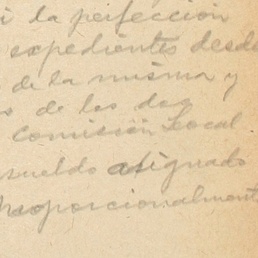 i la perfección
expedientes desde
de la misma y
s de las dos
Comisión Local
sueldo asignado
proporcionalment